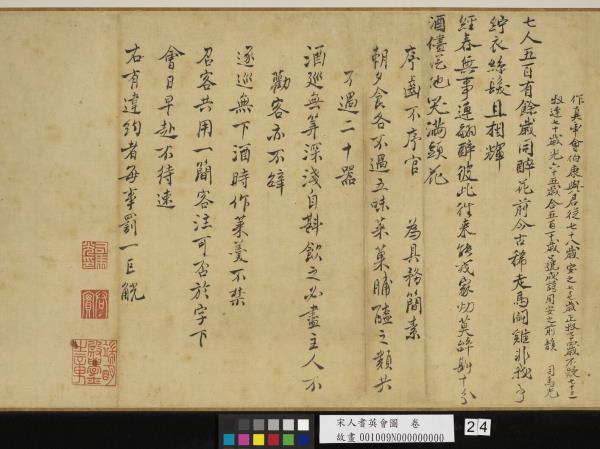 作真率會伯康與君從七十八歲安之七十七歲正叔七十四歲不疑七十三
叔達七十歲光六十五歲合五百一十歲口號成詩用安之前韻 司馬光
七人五百有餘歲同醉花前今古稀走馬鬬雞非我事
紵衣絲髮且相輝
經春無事連翩醉彼此往來能幾家切莫辭斟十分
酒儘從他笑滿頭花
序齒不序官 為具務簡素
朝夕食各不過五味菜菓脯醢之類共
不過二十器
酒巡無算深淺自斟飲之必盡主人不
勸客亦不辭
逐巡無下酒時作菜羹不禁
召客共用一簡客注可否於字下
會日早赴不待速
右有違約者每事罰一巨觥
宋人耆英會圖 卷
故畫 001009N000000000
24